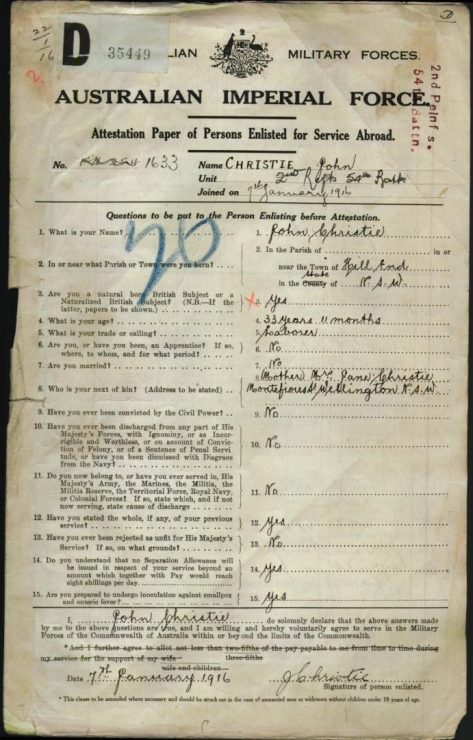 22/1/16
D 35449
LIAN MILITARY FORCES.
2nd Reinf's.
54th Battn.
AUSTRALIAN IMPERIAL FORCE.
Attestation Paper of Persons Enlisted for Service Abroad.
No. 1633 Name CHRISTIE John
Unit 2nd Reifs 54th Batt
Joined on 7th January 1916
Questions to be put to the Person Enlisting before Attestation.
70
1. What is your Name? 1. John Christie
2. In or near what Parish or Town were you born? 2. In the Parish of in or
near the Town of Hill End
in the County of State N.S.W
3. Are you a natural born British Subject or a
Naturalized British Subject? (N.B.—If the
latter, papers to be shown) 3. Yes
4. What is your age? 4. 33 years 11 months
5. What is your trade or calling? 5. Laborer
6. Are you, or have you been, an Apprentice? If so,
where, to whom, and for what period? 6. No
7. Are you married? 7. No
8. Who is your next of kin? (Address to be stated) 8. Mother Mrs Jane Christie
Montefiores Wellington N.S.W
9. Have you ever been convicted by the Civil Power? 9. No
10. Have you ever been discharged from any part of His
Majesty's Forces, with Ignominy, or as Incor-
rigible and Worthless, or on account of Convic-
tion of Felony, or of a Sentence of Penal Servi-
tude, or have you been Dismissed with Disgrace
from the Navy? 10. No
11. Do you now belong to, or have you ever served in, His
Majesty's Army, the Marines, the Militia, the
Militia Reserve, the Territorial Force, Royal Navy,
or Colonial Forces? If so, state which, and if not
now serving, state cause of discharge 11. No
12. Have you stated the whole, if any, of your previous
service? 12. Yes
13. Have you ever been rejected as unfit for His Majesty's
Service? If so, on what grounds? 13. No
14. Do you understand that no Separation Allowance will
be issued in respect of your service beyond an
amount which together with Pay would reach
eight shillings per day 14. Yes
15. Are you prepared to undergo inoculation against smallpox
and enteric fever? 15. Yes
I, John Christie do solemnly declare that the above answers made
by me to the above questions are true, and I am willing and hereby voluntarily agree to serve in the Military
Forces of the Commonwealth of Australia within or beyond the limits of the Commonwealth.
*And I further agree to allot not less than two-fifths of the pay payable to me from time to time during
three-fifths
my service for the support of my wife
wife and children
Date 7th January 1916 J Christie
Signature of person enlisted.
* This clause to be amended where necessary and should be struck out in the case of unmarried men or widowers without children under 16 years of age.